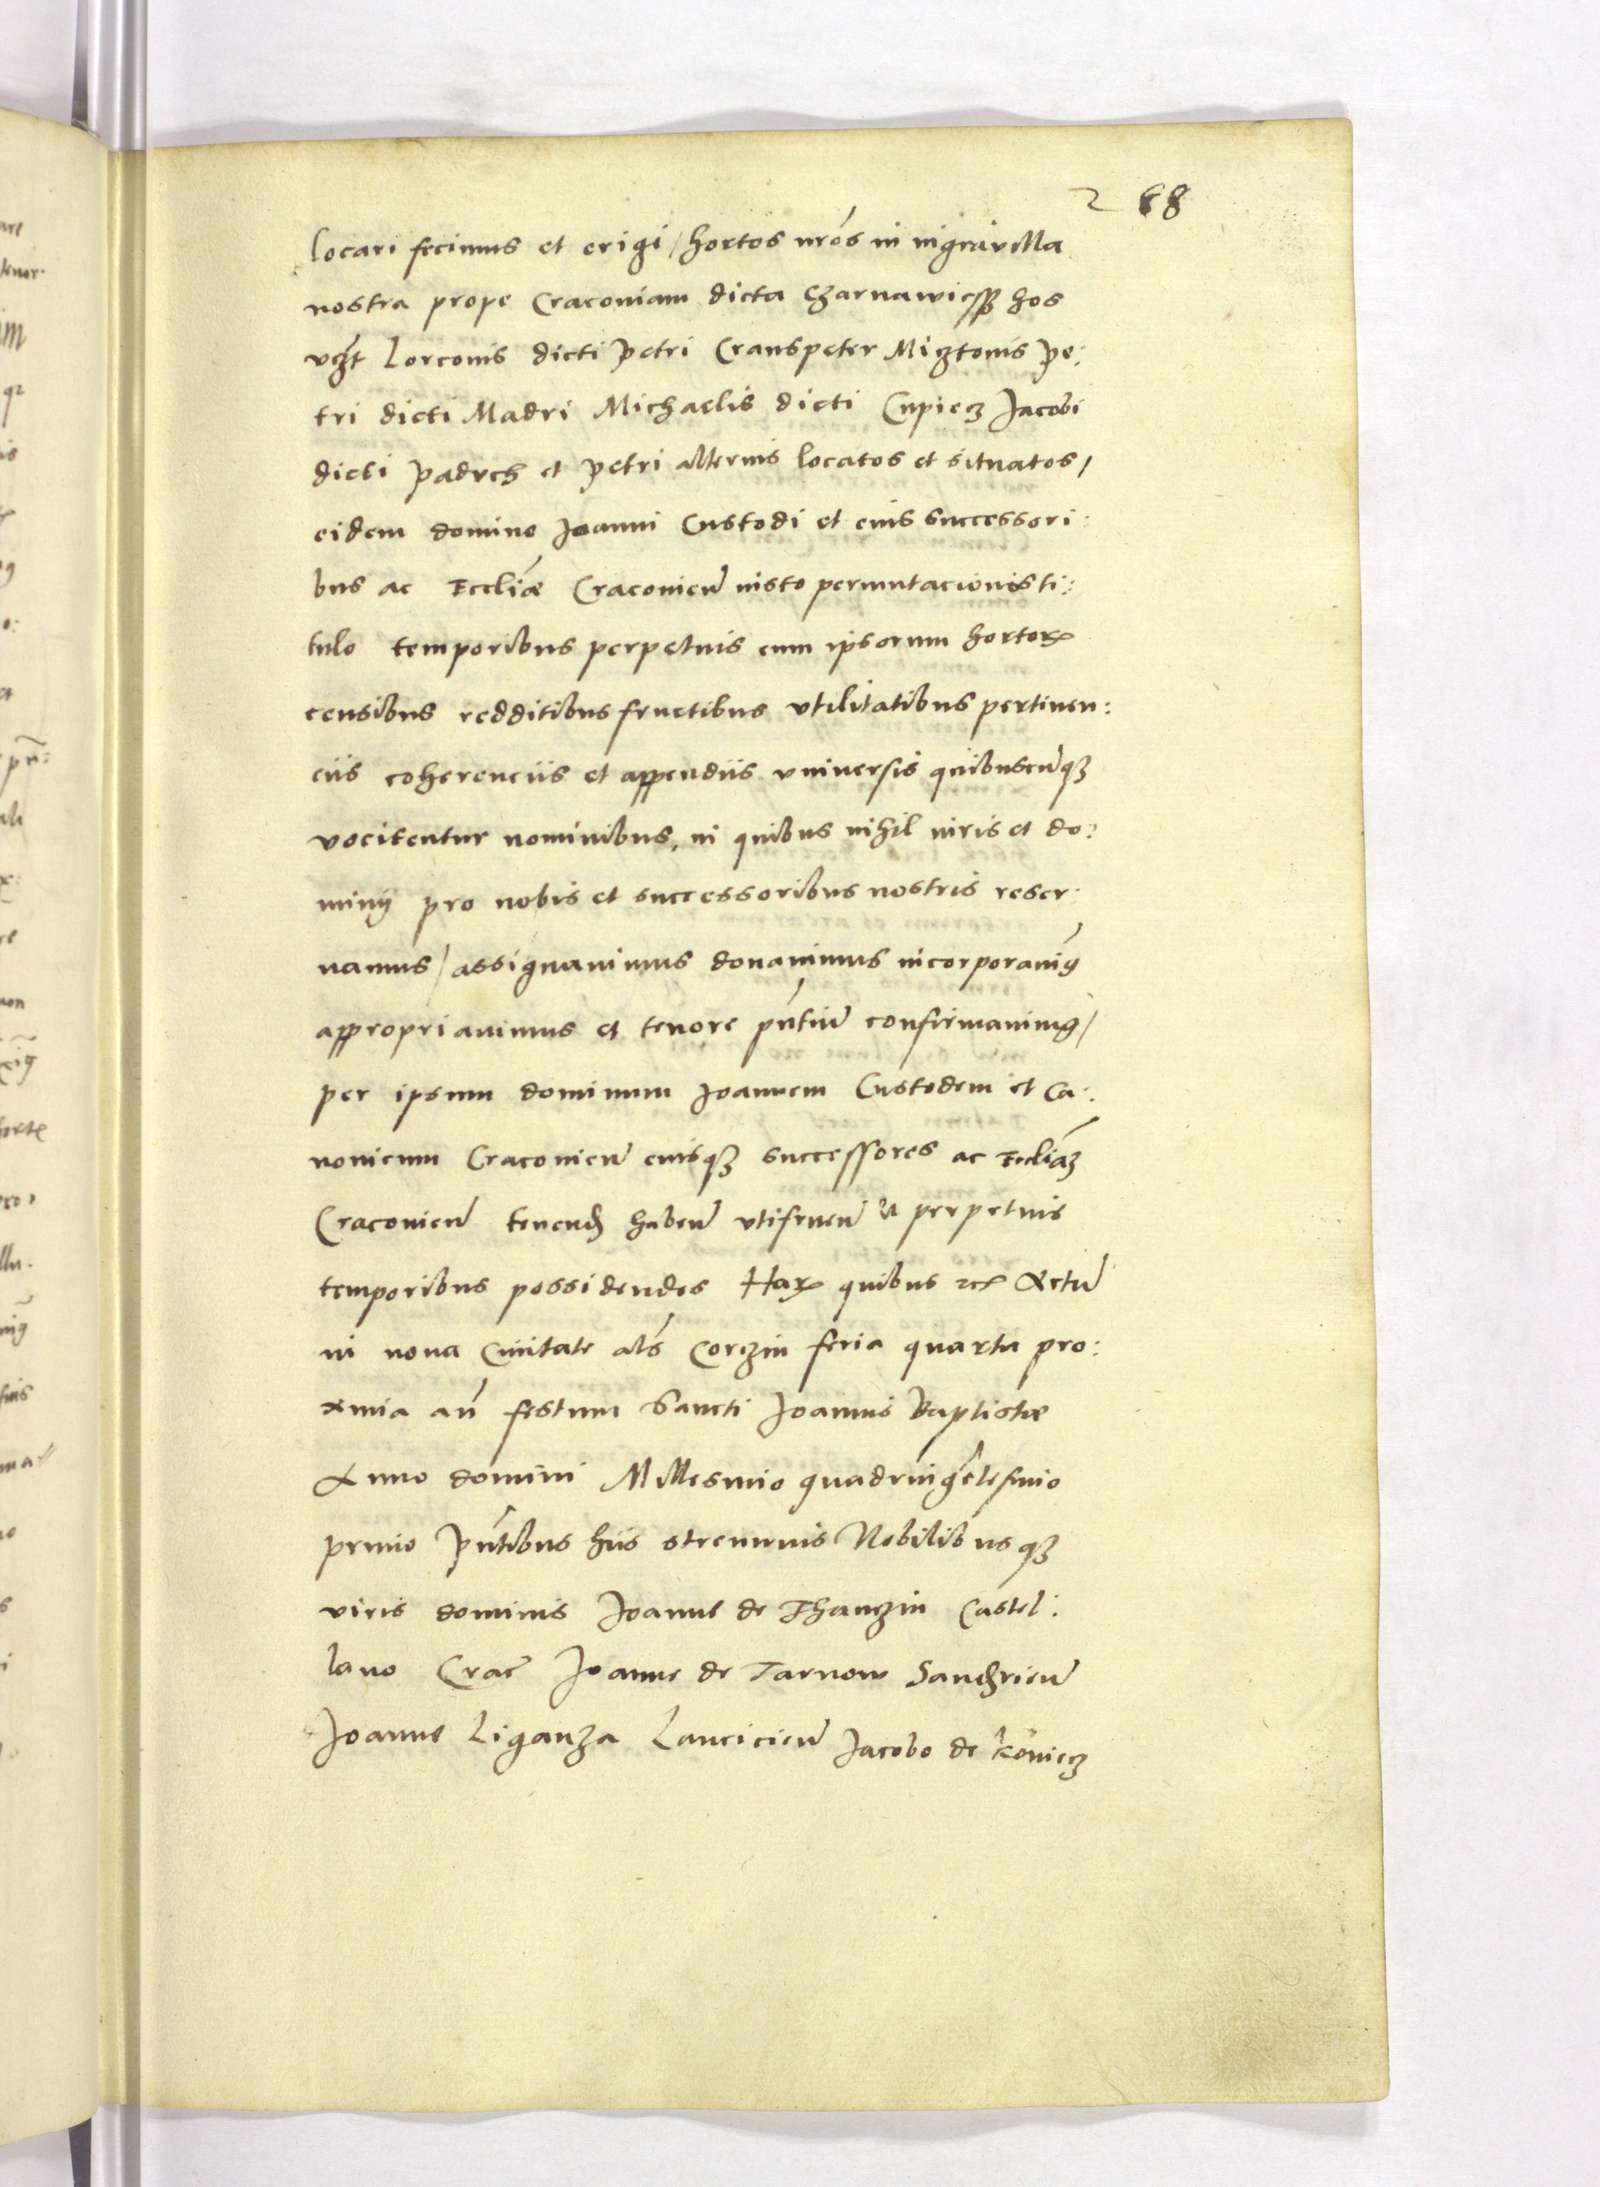 2 68
locari fecimus et erigi / hortos nros in nigra villa
nostra prope Cracoviam dicta Czarnawiess hos
vczt Lorconis dicti Petri Cranspeter Miztonis Pe:
tri dicti Madri Michaelis dicti Cupiecz Jacobi
dicti Padvch et Petri alterius locatos et situatos /
eidem domino Joanni Custodi et eius successori:
bus ac Eccliæ Cracovien iusto permutacionis ti:
tulo temporibus perpetuis cum ipsorum hortorx
censibus redditibus fructibus vtilitatibus pertinen:
ciis coherenciis et appendiis vniversis quibuscunqz
vocitentur nominibus, in quibus nihil iuris et do:
minij pro nobis et successoribus nostris reser:
uamus / assignauimus donauimus incorporauimg
appropriauimus et tenore pntiu confirmauimg /
per ipsum dominum Joannem Custodem et Ca:
nonicum Cracovien eiusqz successores ac Eccliaz
Cracovien tenend haben vtifruen et perpetuis
temporibus possidendos Harx quibus rcx Actu
in nova Ciuitate als Corczin feria quarta pro:
xima an festum Sancti Joannis Baptistæ
Anno domini Millesimo quadringetesimo
primo Pntibus hiis strenuuis Nobilibusqz
viris dominis Joanne de Thanczin Castel:
lano Crac Joanne de Tarnow Sandrien
Joanne Liganza Lancicien Jacobo de Koniecz